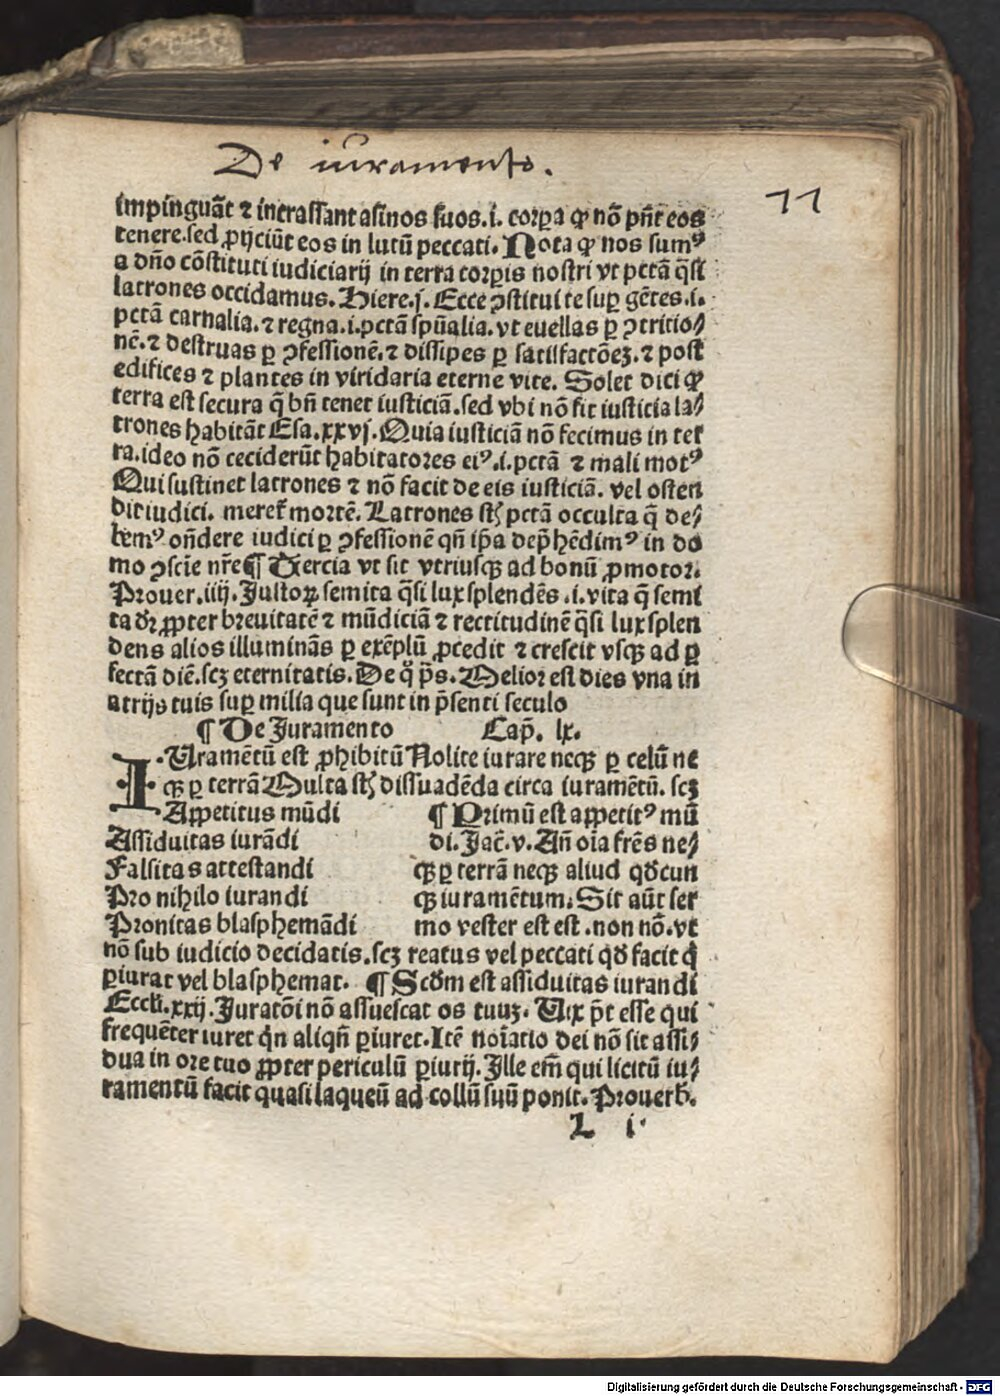 De iuramento.
77
impinguāt ⁊ incrassant asinos suos.i. corꝑa ꝙ nō pn̄t eos
tenere.sed ꝓijciūt eos in lutū peccati. Nota ꝙ nos sumꝰ
a dn̄o cōstituti iudiciarij in terra corꝑis nostri vt pctā q̄si
latrones occidamus. Hiere.j. Ecce ꝯstitui te suꝑ gētes.i.
pctā carnalia.⁊ regna.i.pctā spūalia. vt euellas ꝑ ꝯtritio⸗
nē.⁊ destruas ꝑ ꝯfessionē.⁊ dissipes ꝑ satisfactōeꝫ.⁊ post
edifices ⁊ plantes in viridaria eterne vite. Solet dici ꝙ
terra est secura q̄ bn̄ tenet iusticiā.sed vbi nō fit iusticia la⸗
trones habitāt Esa.xxvj. Quia iusticiā nō fecimus in ter
ra.ideo nō ceciderūt habitatores eiꝰ.i.pctā ⁊ mali motꝰ
Qui sustinet latrones ⁊ nō facit de eis iusticiā. vel osten
dit iudici. meret̄ mortē. Latrones st̄ pctā occulta q̄ de⸗
bemꝰ on̄dere iudici ꝑ ꝯfessionē qn̄ ip̄a dep̄hēdimꝰ in do
mo ꝯscīe nr̄e ¶ Tercia vt sit vtriusqꝫ ad bonū ꝓmotor.
Prouer.iiij. Iustoꝝ semita q̄si lux splendēs .i. vita q̄ semi
ta dr̄ ꝓpter breuitatē ⁊ mūdiciā ⁊ rectitudinē q̄si lux splen
dens alios illuminās ꝑ exēplū ꝓcedit ⁊ crescit vsqꝫ ad ꝑ
fectā diē.scꝫ eternitatis. De q̊ ps̄. Melior est dies vna in
atrijs tuis suꝑ milia que sunt in p̄senti seculo
¶ De Iuramento Cap̄. lx.
I.Uramētū est ꝓhibitū Nolite iurare neqꝫ ꝑ celū ne
qꝫ ꝑ terrā Multa st̄ dissuadēda circa iuramētū. scꝫ
Appetitus mūdi
Assiduitas iurādi
Falsitas attestandi
Pro nihilo iurandi
Pronitas blasphemādi
¶ Primū est appetitꝰ mū
di. Jac̄.v. An̄ oīa frēs ne⸗
qꝫ ꝑ terrā neqꝫ aliud qd̄cun
qꝫ iuramētum. Sit aūt ser
mo vester est est .non nō.vt
nō sub iudicio decidatis.scꝫ reatus vel peccati qd̄ facit q̇
ꝑiurat vel blasphemat. ¶ Scd̄m est assiduitas iurandi
Eccli.xxij. Juratōi nō assuescat os tuuꝫ. Uix pt̄ esse qui
frequēter iuret qn̄ aliqn̄ ꝑiuret. Itē noīatio dei nō sit assi⸗
dua in ore tuo ꝓpter periculū ꝑiurij. Ille em̄ qui licitū iu⸗
ramentū facit quasi laqueū ad collū suū ponit. Prouerb.
L i
Digitalisierung gefördert durch die Deutsche Forschungsgemeinschaft - DFG